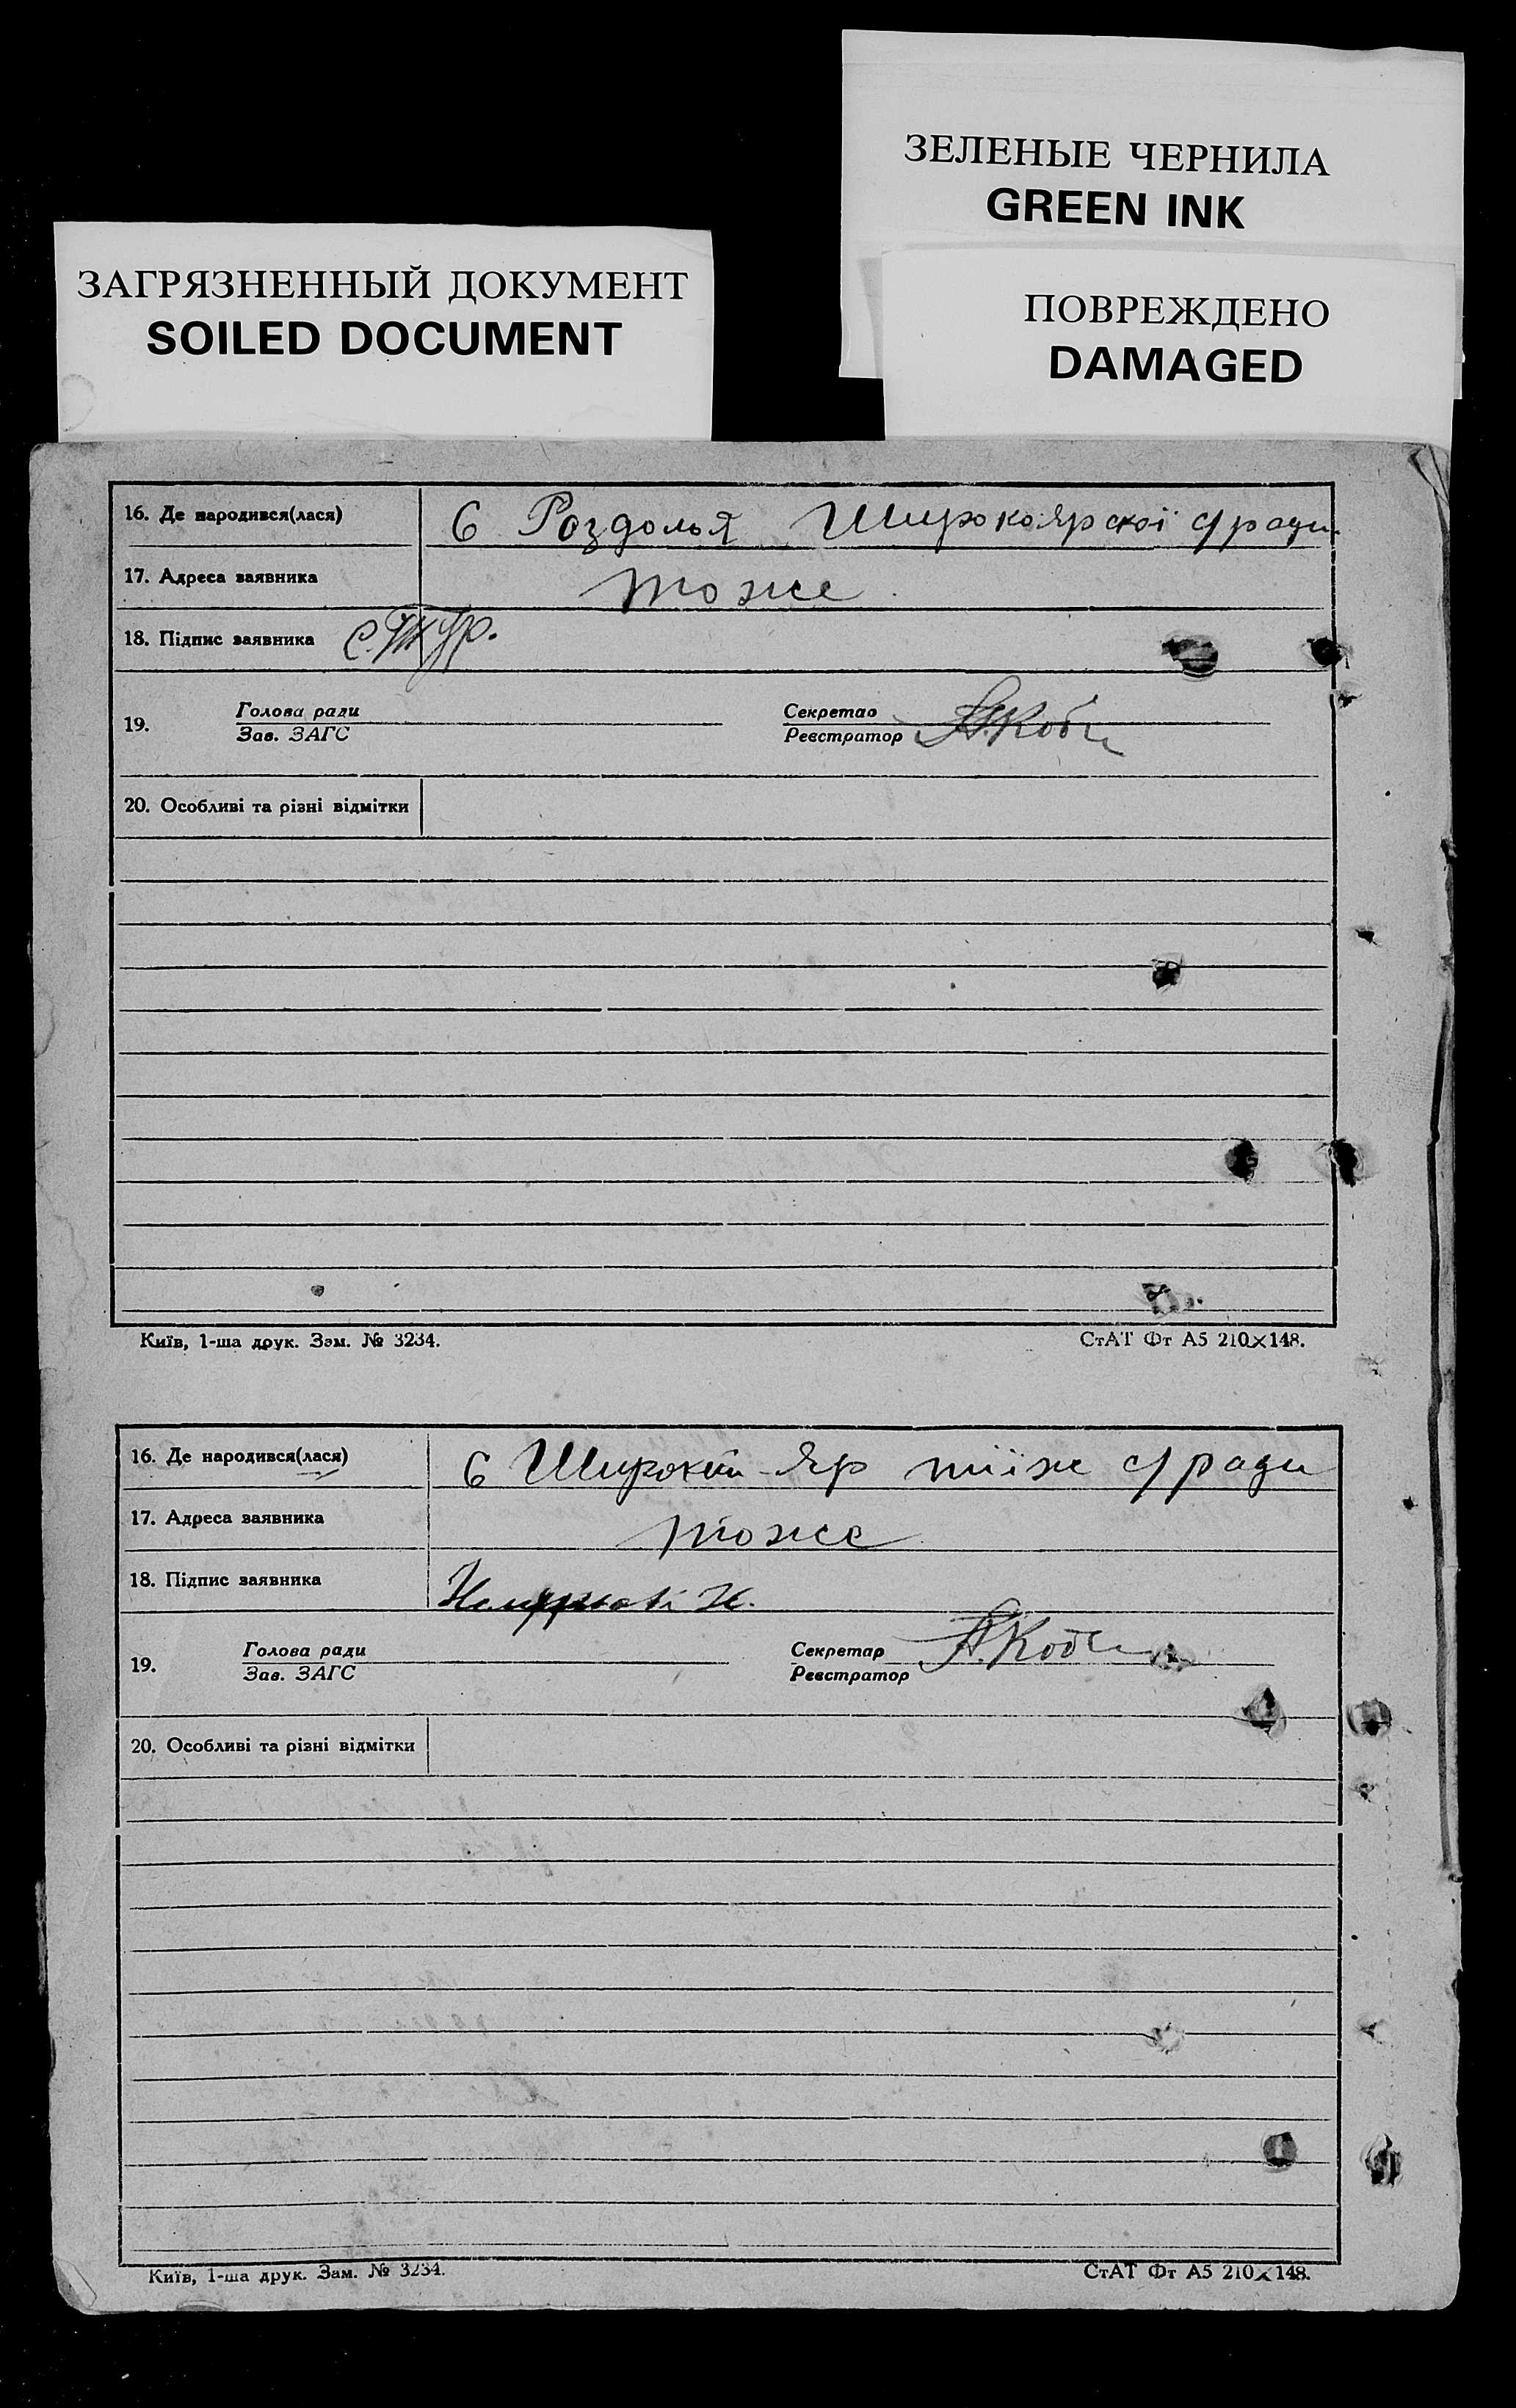 ЗЕЛЕНЫЕ ЧЕРНИЛА
GREEN INK
ЗАГРЯЗНЕННЫЙ ДОКУМЕНТ
SOILED DOCUMENT
ПОВРЕЖДЕНО
DAMAGED
16. Де народився(лася) С Роздолья Широкоярской с/ради
17. Адреса заявника тоже
18. Підпис заявника
19. Голова ради Секретар
Зав. ЗАГС Реєстратор
20. Особливі та різні відмітки
Київ, 1-ша друк. Зам. № 3234. СтАТ Фт А5 210×148.
16. Де народився(лася) С Широкий Яр тиїж с/ради
17. Адреса заявника тоже
18. Підпис заявника
19. Голова ради Секретар
Зав. ЗАГС Реєстратор
20. Особливі та різні відмітки
Київ, 1-ша друк. Зам. № 3234. СтАТ Фт А5 210×148.